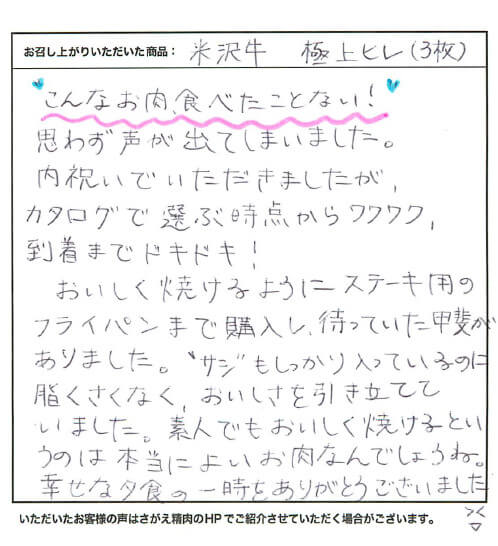 お召し上がりいただいた商品： 米沢牛 極上ヒレ(3枚)
こんなお肉、食べたことない！
思わず声が出てしまいました。
内祝いでいただきましたが、
カタログで選ぶ時点からワクワク、
到着までドキドキ！
おいしく焼けるようにステーキ用の
フライパンまで購入し、待っていた甲斐が
ありました。“サシ”もしっかり入っているのに
脂くさくなく、おいしさを引き立てて
いました。素人でもおいしく焼けるとい
うのは本当によいお肉なんでしょうね。
幸せな夕食の一時をありがとうございました
いただいたお客様の声はさがえ精肉のHPでご紹介させていただく場合がございます。